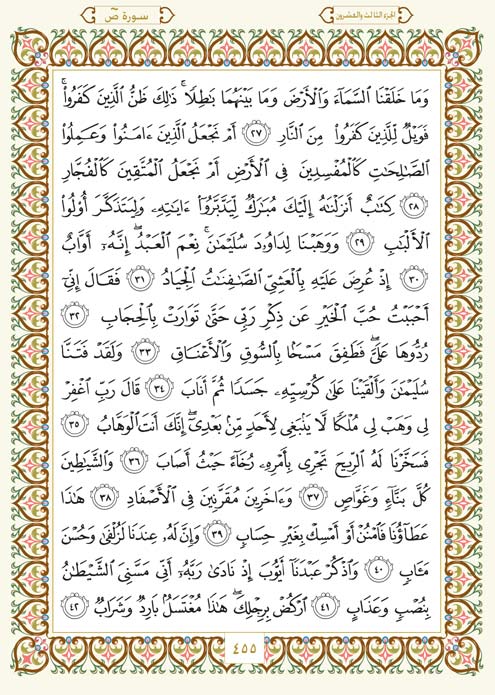 الجزء الثالث والعشرون
سورة صٓ
وَمَا خَلَقْنَا ٱلسَّمَآءَ وَٱلْأَرْضَ وَمَا بَيْنَهُمَا بَٰطِلًا ۚ ذَٰلِكَ ظَنُّ ٱلَّذِينَ كَفَرُوا۟ ۚ
فَوَيْلٌ لِّلَّذِينَ كَفَرُوا۟ مِنَ ٱلنَّارِ ٢٧ أَمْ نَجْعَلُ ٱلَّذِينَ ءَامَنُوا۟ وَعَمِلُوا۟
ٱلصَّٰلِحَٰتِ كَٱلْمُفْسِدِينَ فِى ٱلْأَرْضِ أَمْ نَجْعَلُ ٱلْمُتَّقِينَ كَٱلْفُجَّارِ
٢٨ كِتَٰبٌ أَنزَلْنَٰهُ إِلَيْكَ مُبَٰرَكٌ لِّيَدَّبَّرُوٓا۟ ءَايَٰتِهِۦ وَلِيَتَذَكَّرَ أُو۟لُوا۟
ٱلْأَلْبَٰبِ ٢٩ وَوَهَبْنَا لِدَاوُۥدَ سُلَيْمَٰنَ ۚ نِعْمَ ٱلْعَبْدُ ۖ إِنَّهُۥٓ أَوَّابٌ
٣٠ إِذْ عُرِضَ عَلَيْهِ بِٱلْعَشِىِّ ٱلصَّٰفِنَٰتُ ٱلْجِيَادُ ٣١ فَقَالَ إِنِّىٓ
أَحْبَبْتُ حُبَّ ٱلْخَيْرِ عَن ذِكْرِ رَبِّى حَتَّىٰ تَوَارَتْ بِٱلْحِجَابِ ٣٢
رُدُّوهَا عَلَىَّ ۖ فَطَفِقَ مَسْحًۢا بِٱلسُّوقِ وَٱلْأَعْنَاقِ ٣٣ وَلَقَدْ فَتَنَّا
سُلَيْمَٰنَ وَأَلْقَيْنَا عَلَىٰ كُرْسِيِّهِۦ جَسَدًا ثُمَّ أَنَابَ ٣٤ قَالَ رَبِّ ٱغْفِرْ
لِى وَهَبْ لِى مُلْكًا لَّا يَنۢبَغِى لِأَحَدٍ مِّنۢ بَعْدِىٓ ۖ إِنَّكَ أَنتَ ٱلْوَهَّابُ ٣٥
فَسَخَّرْنَا لَهُ ٱلرِّيحَ تَجْرِى بِأَمْرِهِۦ رُخَآءً حَيْثُ أَصَابَ ٣٦ وَٱلشَّيَٰطِينَ
كُلَّ بَنَّآءٍ وَغَوَّاصٍ ٣٧ وَءَاخَرِينَ مُقَرَّنِينَ فِى ٱلْأَصْفَادِ ٣٨ هَٰذَا
عَطَآؤُنَا فَٱمْنُنْ أَوْ أَمْسِكْ بِغَيْرِ حِسَابٍ ٣٩ وَإِنَّ لَهُۥ عِندَنَا لَزُلْفَىٰ وَحُسْنَ
مَـَٔابٍ ٤٠ وَٱذْكُرْ عَبْدَنَآ أَيُّوبَ إِذْ نَادَىٰ رَبَّهُۥٓ أَنِّى مَسَّنِىَ ٱلشَّيْطَٰنُ
بِنُصْبٍ وَعَذَابٍ ٤١ ٱرْكُضْ بِرِجْلِكَ ۖ هَٰذَا مُغْتَسَلٌۢ بَارِدٌ وَشَرَابٌ ٤٢
٤٥٥